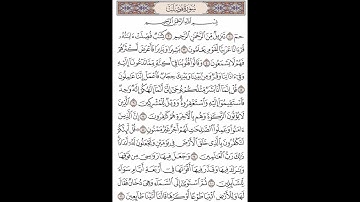 سورة فصلت
بسم الله الرحمن الرحيم
حم ۝١ تنزيل من الرحمن الرحيم ۝٢ كتب فصلت ءايته
قرءانا عربيا لقوم يعلمون ۝٣ بشيرا ونذيرا فأعرض أكثرهم
فهم لا يسمعون ۝٤ وقالوا قلوبنا في أكنة مما تدعونا إليه
وفي ءاذاننا وقر ومن بيننا وبينك حجاب فاعمل إننا عملون
۝٥ قل إنما أنا بشر مثلكم يوحى إلي أنما إلهكم إله وحد
فاستقيموا إليه واستغفروه وويل للمشركين ۝٦ الذين
لا يؤتون الزكوة وهم بالأخرة هم كفرون ۝٧ إن الذين
ءامنوا وعملوا الصلحت لهم أجر غير ممنون ۝٨ قل أئنكم
لتكفرون بالذي خلق الأرض في يومين وتجعلون له أندادا
ذلك رب العلمين ۝٩ وجعل فيها روسي من فوقها
وبرك فيها وقدر فيها أقوتها في أربعة أيام سواء
للسائلين ۝١٠ ثم استوى إلى السماء وهي دخان فقال
لها وللأرض ائتيا طوعا أو كرها قالتا أتينا طائعين ۝١١